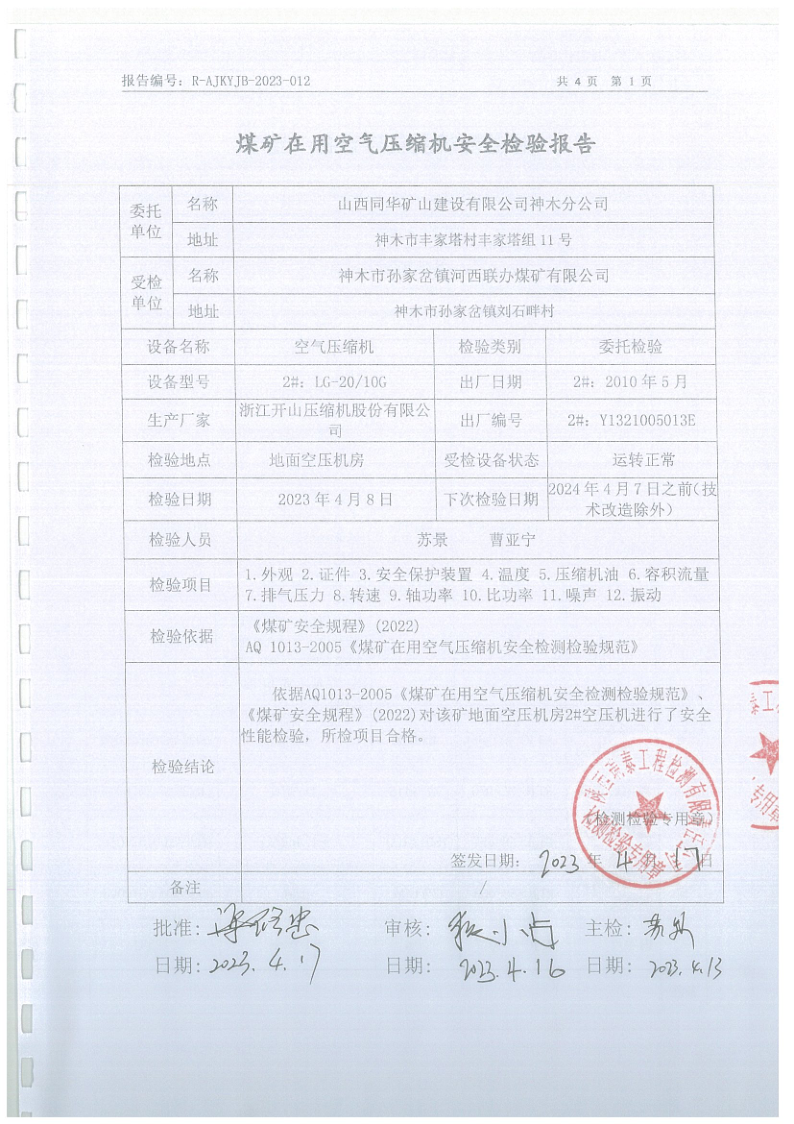 报告编号：R-AJKYJB-2023-012 共 4 页 第 1 页
煤矿在用空气压缩机安全检验报告
委托单位 名称 山西同华矿山建设有限公司神木分公司
地址 神木市丰家塔村丰家塔组 11 号
受检单位 名称 神木市孙家岔镇河西联办煤矿有限公司
地址 神木市孙家岔镇刘石畔村
设备名称 空气压缩机 检验类别 委托检验
设备型号 2#：LG-20/10G 出厂日期 2#：2010 年 5 月
生产厂家 浙江开山压缩机股份有限公司 出厂编号 2#：Y1321005013E
检验地点 地面空压机房 受检设备状态 运转正常
检验日期 2023 年 4 月 8 日 下次检验日期 2024 年 4 月 7 日之前（技术改造除外）
检验人员 苏景 曹亚宁
检验项目 1.外观 2.证件 3.安全保护装置 4.温度 5.压缩机油 6.容积流量
7.排气压力 8.转速 9.轴功率 10.比功率 11.噪声 12.振动
检验依据 《煤矿安全规程》(2022)
AQ 1013-2005《煤矿在用空气压缩机安全检测检验规范》
依据AQ1013-2005《煤矿在用空气压缩机安全检测检验规范》、
《煤矿安全规程》(2022)对该矿地面空压机房2#空压机进行了安全
性能检验，所检项目合格。
检验结论
泰工程检测有限
（检测检验专用章）
签发日期： 2023 年 4 月 17 日
备注 /
批准： 审核： 主检：
日期：2023.4.17 日期：2023.4.16 日期：2023.4.13